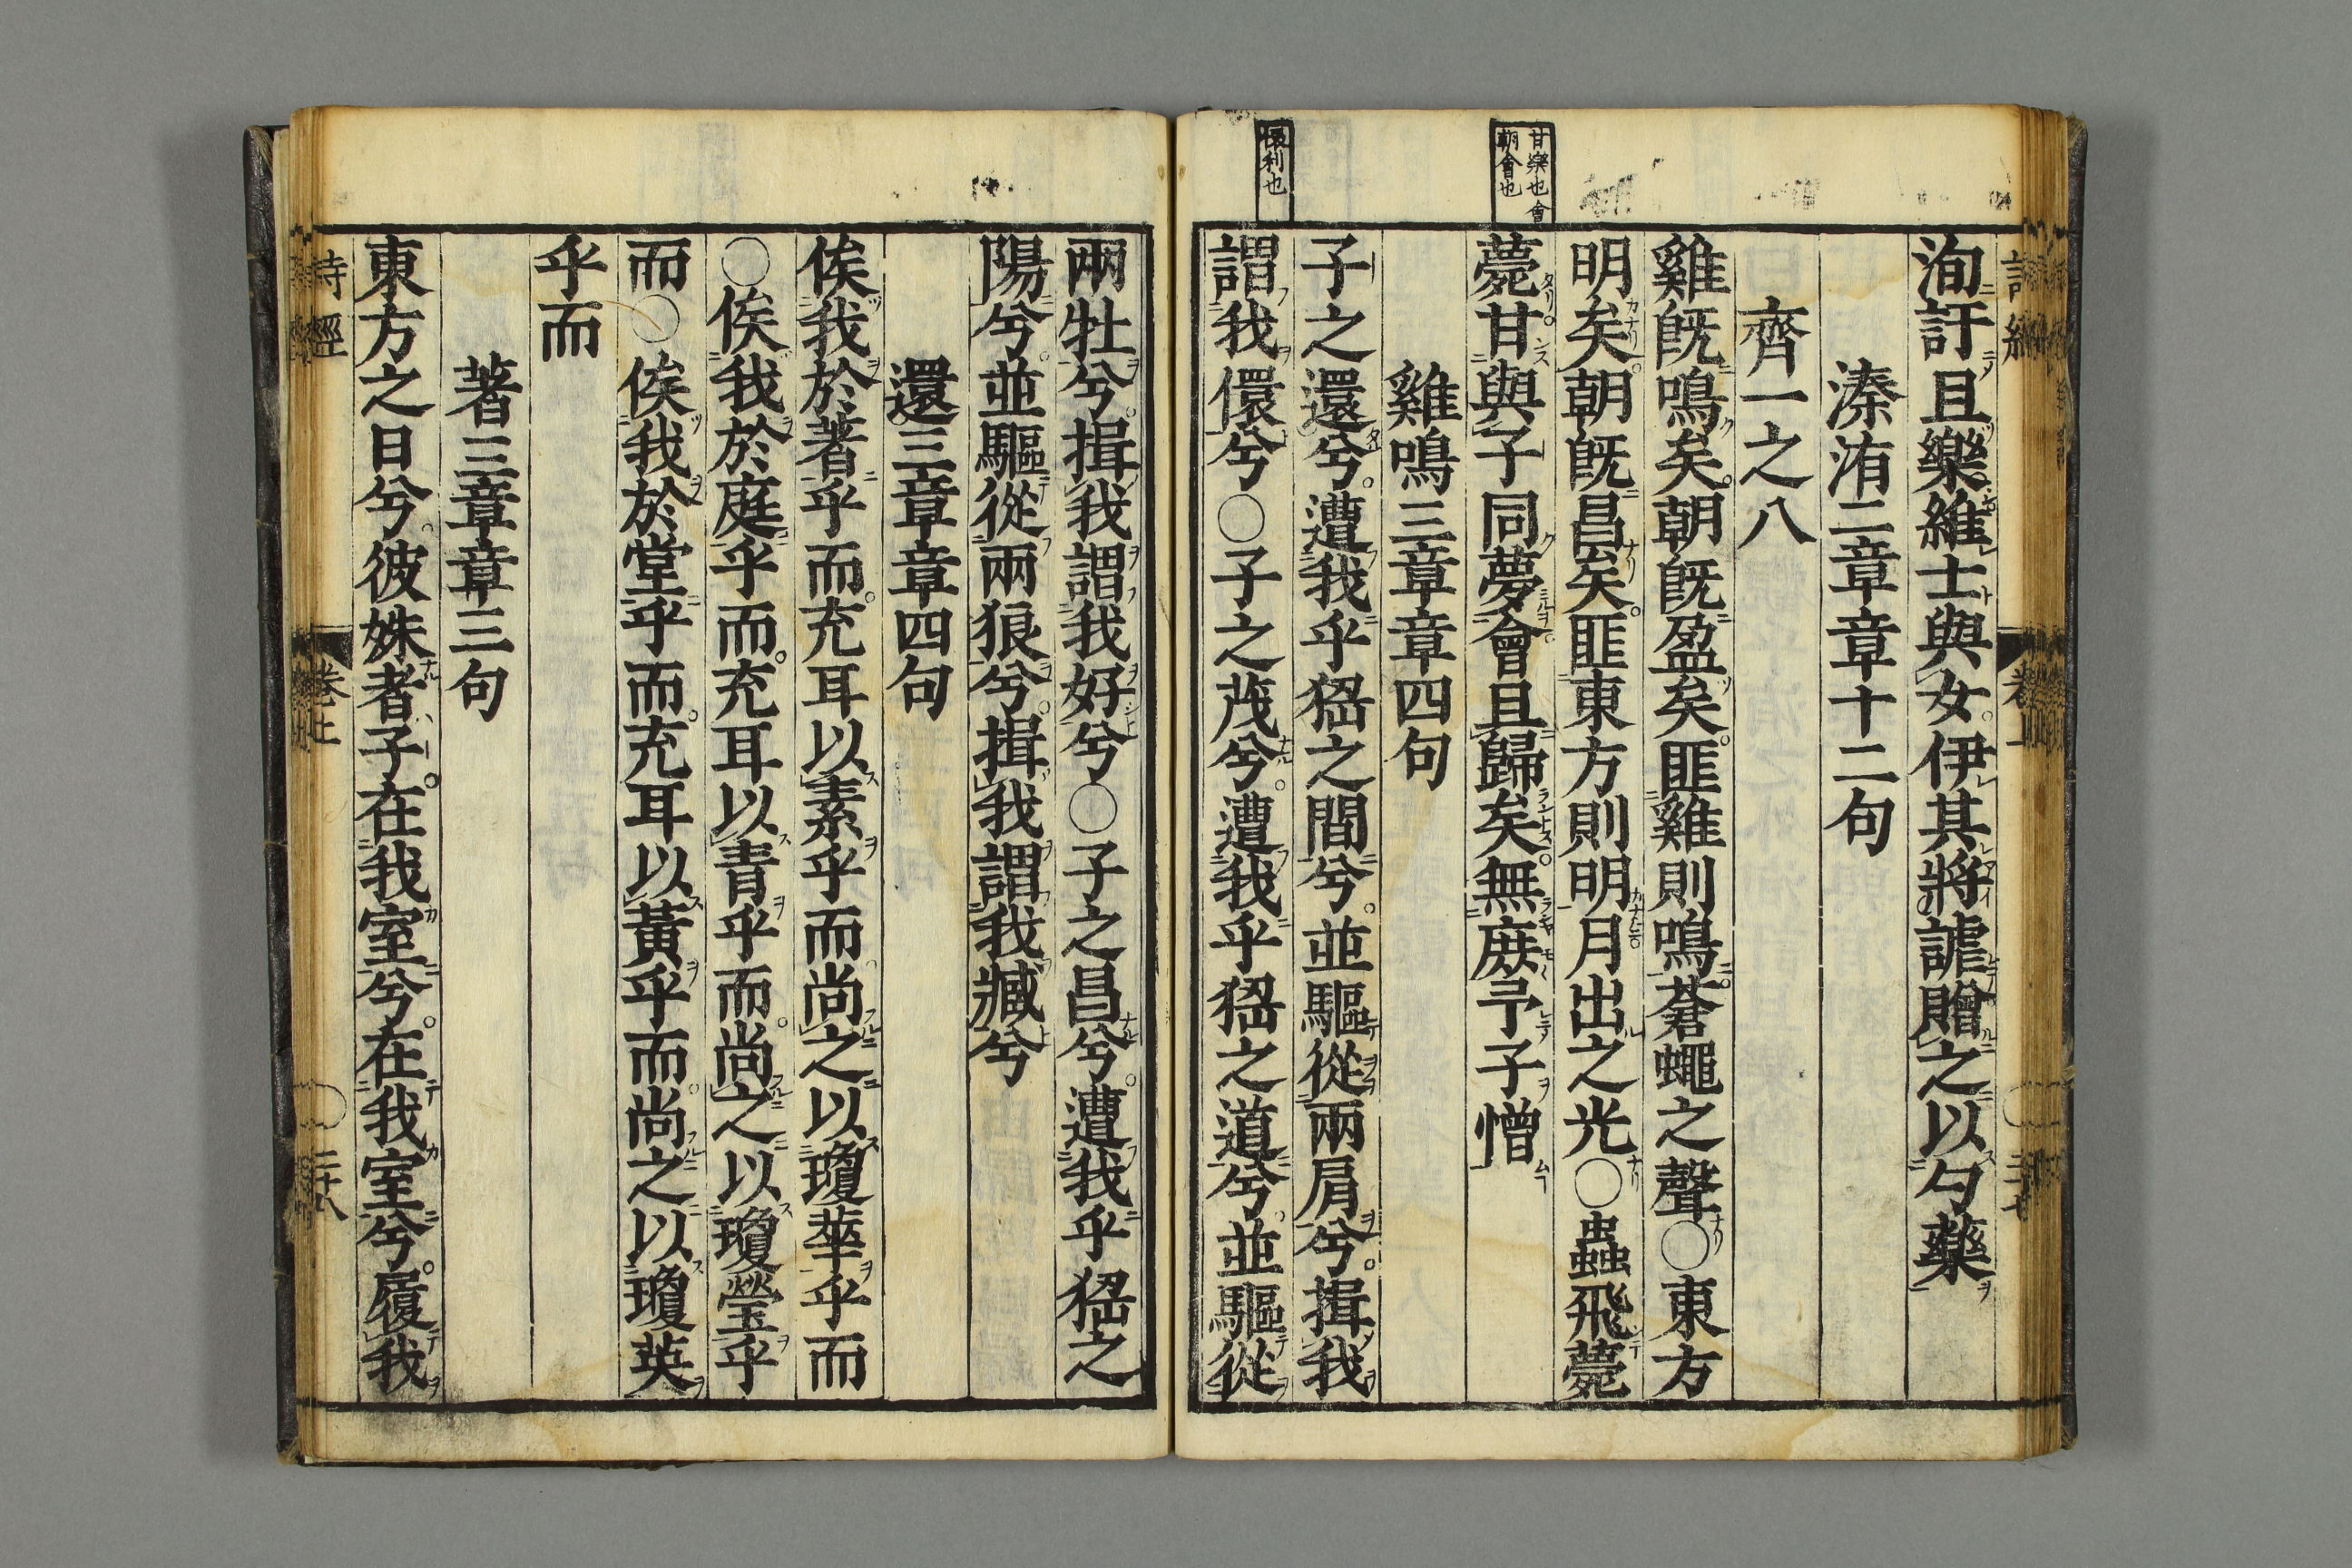 甘樂也會
朝會也
儇利也
洵訏且樂維士與女伊其將謔贈之以勺藥
溱洧二章章十二句
齊一之八
雞旣鳴矣朝旣盈矣匪雞則鳴蒼蠅之聲○東方
明矣朝旣昌矣匪東方則明月出之光○蟲飛薨
薨甘與子同夢會且歸矣無庶予子憎
雞鳴三章章四句
子之還兮遭我乎峱之間兮並驅從兩肩兮揖我
謂我儇兮○子之茂兮遭我乎峱之道兮並驅從
兩牡兮揖我謂我好兮○子之昌兮遭我乎峱之
陽兮並驅從兩狼兮揖我謂我臧兮
還三章章四句
俟我於著乎而充耳以素乎而尚之以瓊華乎而
○俟我於庭乎而充耳以青乎而尚之以瓊瑩乎
而○俟我於堂乎而充耳以黃乎而尚之以瓊英
乎而
著三章章三句
東方之日兮彼姝者子在我室兮在我室兮履我
詩經
二十八